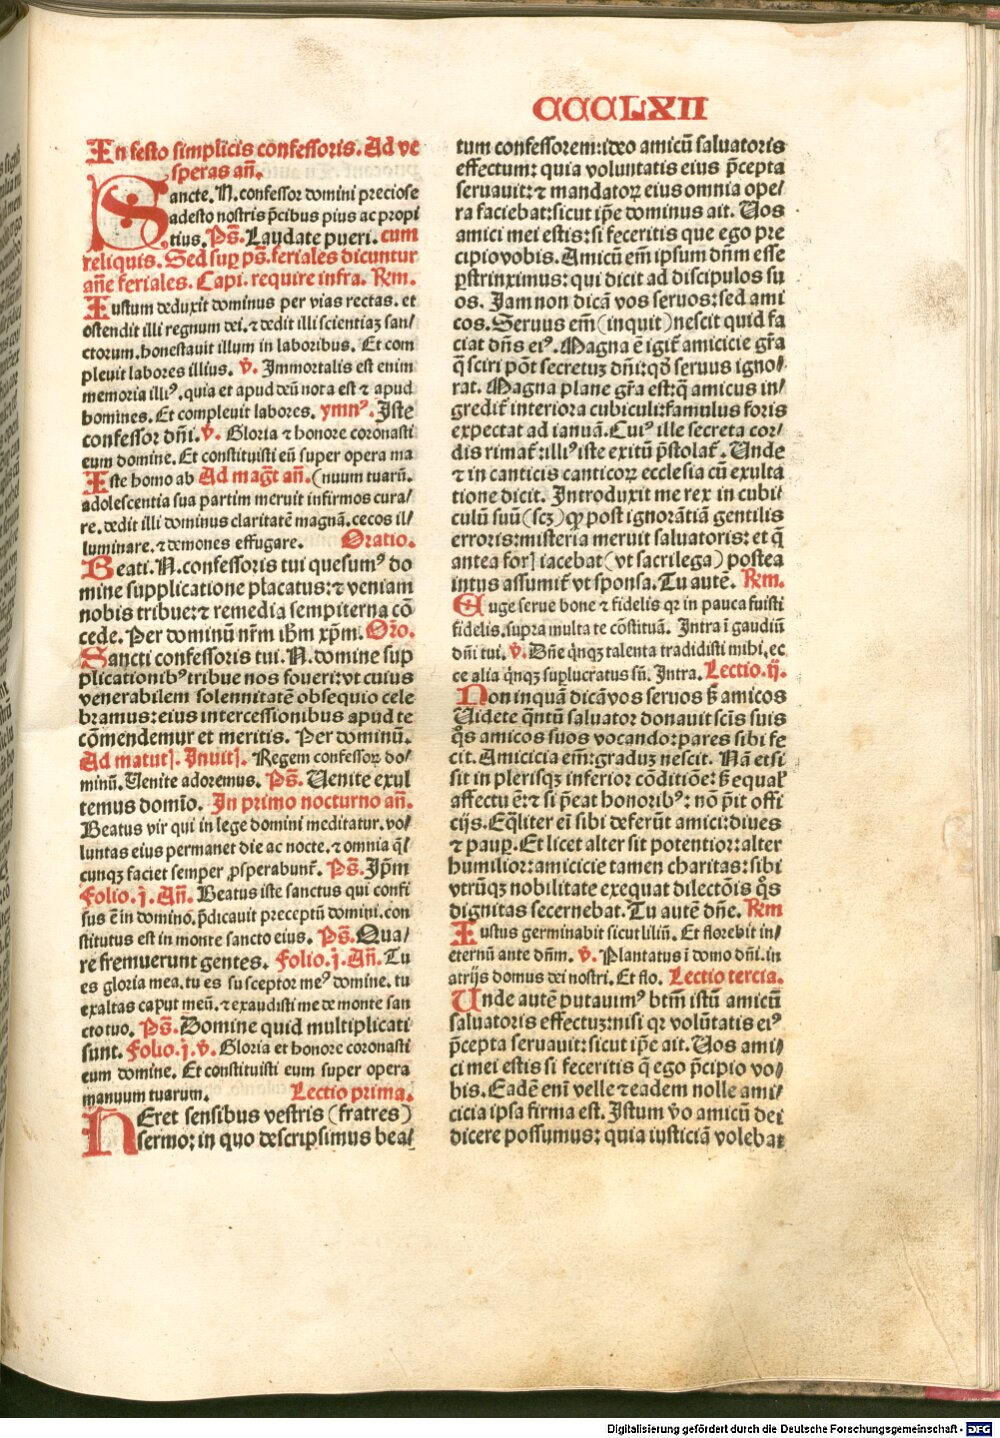 CCCLXII
In festo simplicis confessoris. Ad ve
speras añ.
Sancte. N. confessor domini preciose
adesto nostris p̄cibus pius ac propi
tius. Ps̄. Laudate pueri. cum
reliquis. Sed suꝑ ps̄. feriales dicuntur
añe feriales. Capi. require infra. Rm̄.
Iustum deduxit dominus per vias rectas. et
ostendit illi regnum dei. ⁊ dedit illi scientiaꝫ san/
ctorum. honestauit illum in laboribus. Et com
pleuit labores illius. v̄. Immortalis est enim
memoria illiꝰ. quia et apud deū nota est ⁊ apud
homines. Et compleuit labores. ymnꝰ. Iste
confessor dñi. v̄. Gloria ⁊ honore coronasti
eum domine. Et constituisti eū super opera ma
Iste homo ab Ad mag̃t añ. (nuum tuarū.
adolescentia sua partim meruit infirmos cura/
re. dedit illi dominus claritatē magnā. cecos il/
luminare. ⁊ demones effugare. Oratio.
Beati. N. confessoris tui quesumꝰ do
mine supplicatione placatus: ⁊ veniam
nobis tribue: ⁊ remedia sempiterna cō
cede. Per dominū nr̄m ih̄m xp̄m. Or̄o.
Sancti confessoris tui. N. domine sup
plicationibꝰ tribue nos foueri: vt cuius
venerabilem solennitatē obsequio cele
bramus: eius intercessionibus apud te
cōmendemur et meritis. Per dominū.
Ad matutꝭ. Inuitꝭ. Regem confessoꝝ do/
minū. Uenite adoremus. Ps̄. Uenite exul
temus domīo. In primo nocturno añ.
Beatus vir qui in lege domini meditatur. vo/
luntas eius permanet die ac nocte. ⁊ omnia q̄/
cunqꝫ faciet semper ꝓsperabunt̄. Ps̄. Ip̄m
Folio. j. Añ. Beatus iste sanctus qui confi
sus ē in domino. p̄dicauit preceptū domini. con
stitutus est in monte sancto eius. Ps̄. Qua/
re fremuerunt gentes. Folio. j. Añ. Tu
es gloria mea. tu es susceptor meꝰ domine. tu
exaltas caput meū. ⁊ exaudisti me de monte san
cto tuo. Ps̄. Domine quid multiplicati
sunt. Folio. j. v̄. Gloria et honore coronasti
eum domine. Et constituisti eum super opera
manuum tuarum. Lectio prima.
HEret sensibus vestris (fratres)
sermo: in quo descripsimus bea/
tum confessorem: ideo amicū saluatoris
effectum: quia voluntatis eius p̄cepta
seruauit: ⁊ mandatoꝝ eius omnia ope/
ra faciebat: sicut ip̄e dominus ait. Uos
amici mei estis: si feceritis que ego pre
cipio vobis. Amicū em̄ ipsum dn̄m esse
ꝑstrinximus: qui dicit ad discipulos su
os. Iam non dicā vos seruos: sed ami
cos. Seruus em̄ (inquit) nescit quid fa
ciat dn̄s eiꝰ. Magna ē igit̄ amicicie gr̄a
q̄ sciri pōt secretuꝫ dn̄i: qd̄ seruus igno/
rat. Magna plane gr̄a est: q̄ amicus in/
gredit̄ interiora cubiculi: famulus foris
expectat ad ianuā. Cuiꝰ ille secreta cor/
dis rimat̄: illiꝰ iste exitū p̄stolat̄. Unde
⁊ in canticis canticoꝝ ecclesia cū exulta
tione dicit. Introduxit me rex in cubi/
culū suū (scꝫ) qꝛ post ignorātiā gentilis
erroris: misteria meruit saluatoris: et q̄
antea forꝭ iacebat (vt sacrilega) postea
intus assumit̄ vt sponsa. Tu autē. Rm̄.
Euge serue bone ⁊ fidelis qꝛ in pauca fuisti
fidelis. supra multa te cōstituā. Intra ī gaudiū
dn̄i tui. v̄. Dn̄e q̄nqꝫ talenta tradidisti mihi. ec
ce alia q̄nqꝫ suꝑlucratus sū. Intra. Lectio. ij.
Non inquā dicā vos seruos sꝫ amicos
Uidete q̄ntū saluator donauit scīs suis
q̄s amicos suos vocando: pares sibi fe
cit. Amicicia em̄: graduꝫ nescit. Nā etsi
sit in plerisqꝫ inferior cōditiōe: sꝫ equal̄
affectu ē: ⁊ si p̄eat honoribꝰ: nō p̄it offi
cijs. Eq̄liter eī sibi deferūt amici: diues
⁊ pauꝑ. Et licet alter sit potentior: alter
humilior: amicicie tamen charitas: sibi
vtrūqꝫ nobilitate exequat dilectōis q̄s
dignitas secernebat. Tu autē dn̄e. Rm̄
Iustus germinabit sicut liliū. Et florebit in/
eternū ante dn̄m. v̄. Plantatus ī domo dn̄i. in
atrijs domus dei nostri. Et flo. Lectio tercia.
Unde autē putauimꝰ btm̄ istū amicū
saluatoris effectuꝫ: nisi qꝛ volūtatis eiꝰ
p̄cepta seruauit: sicut ip̄e ait. Uos ami/
ci mei estis si feceritis q̄ ego p̄cipio vo/
bis. Eadē eni velle ⁊ eadem nolle ami/
cicia ipsa firma est. Istum v̄o amicū dei
dicere possumus: quia iusticiā volebat
Digitalisierung gefördert durch die Deutsche Forschungsgemeinschaft - DFG